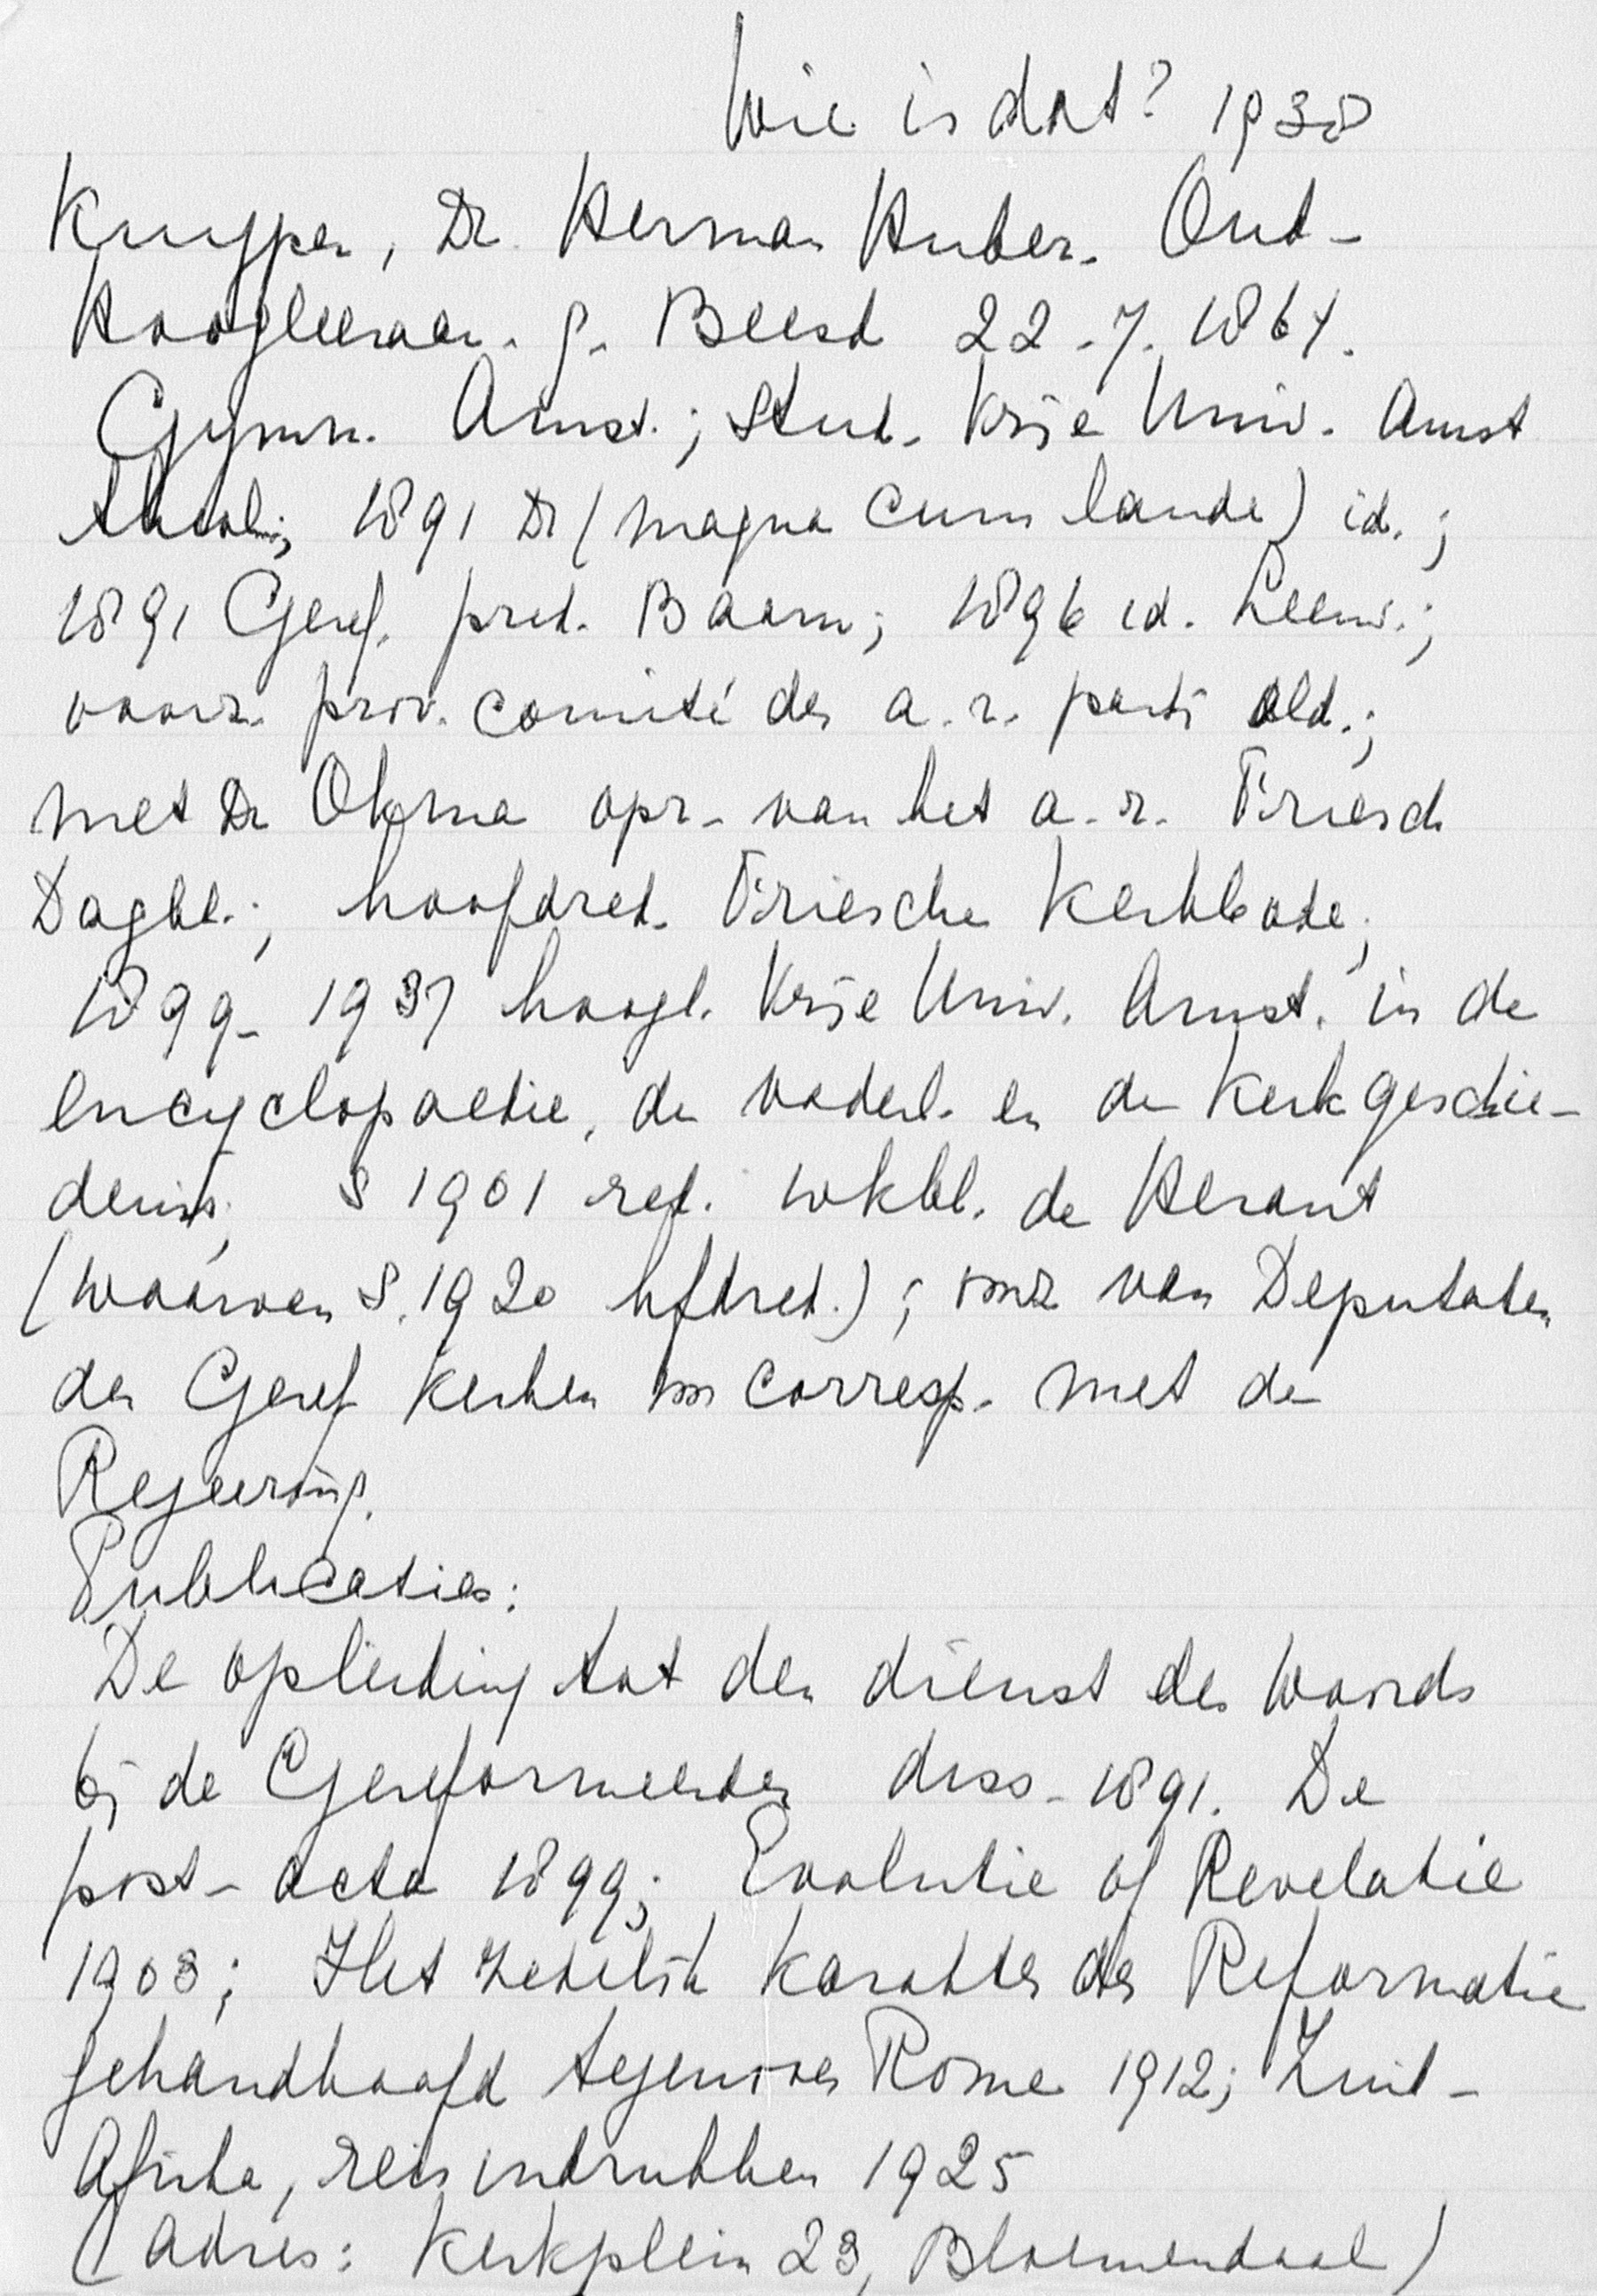 Wie is dat? 1938
Kuyper, Dr. Herman Huber. Oud-
Hoogleeraar. g. Beesd 22.7.1864.
Gymn. Amst.; Stud. Vrije Univ. Amst
theol.; 1891 Dr (magna cum laude) id.;
1891 Geref. pred. Baarn; 1896 id. Leeuw.;
voorz. prov. comité der a.r. partij ald.;
met Dr Okma opr. van het a.r. Friesch
Dagbl.; hoofdred. Friesche Kerkbode;
1899-1937 hoogl. Vrije Univ. Amst. in de
encyclopaedie, de vaderl. en de Kerkgeschie-
denis; S 1901 red. wkbl. de Heraut
(waarvan S. 1920 hfdred.); vrz van Deputaten
der Geref Kerken voor corresp. met de
Regeering.
Publicaties:
De opleiding tot den dienst des Woords
bij de Gereformeerden diss. 1891. De
post-acta 1899; Evolutie of Revelatie
1903; Het zedelijk karakter der Reformatie
gehandhaafd tegenover Rome 1912; Zuid-
Afrika, reisindrukken 1925
(Adres: Kerkplein 23, Bloemendaal)